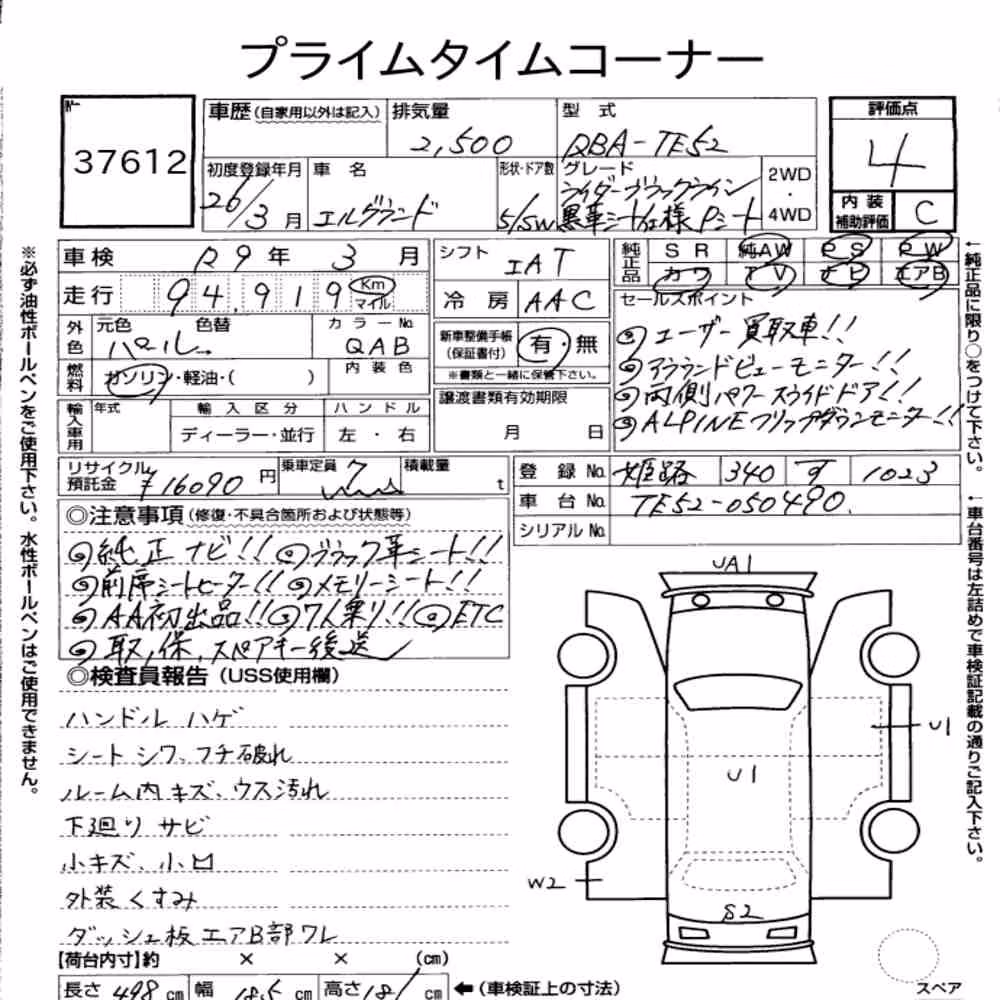 プライムタイムコーナー
37612
車歴(自家用以外は記入) 排気量 2,500 型式 QBA-TE52
評価点 4
初度登録年月 26/3月 車名 エルグランド 形状・ドア数 5/SW グレード ライダーブラックライン 黒革シート仕様 Pシート 2WD・4WD
内装補助評価 C
車検 R9年 3月
走行 94,919 Km マイル
シフト IAT
冷房 AAC
純正品 SR 純AW PS PW
カワ TV ナビ エアB
外色 元色 パール 色替 カラーNo. QAB
燃料 ガソリン・軽油・( ) 内装色
新車整備手帳(保証書付) 有・無
※書類と一緒に保管下さい。
セールスポイント
ユーザー買取車!!
アラウンドビューモニター!!
両側パワースライドドア!!
ALPINEフリップダウンモニター!!
輸入車用 年式 輸入区分 ハンドル
ディーラー・並行 左・右
譲渡書類有効期限
月 日
リサイクル預託金 ¥16090円 乗車定員 7 積載量 t
登録No. 姫路 340 す 1023
車台No. TE52-050490.
シリアルNo.
◎注意事項(修復・不具合箇所および状態等)
純正ナビ!! ブラック革シート!!
前席シートヒーター!! メモリーシート!!
AA初出品!! 7人乗り!! ETC
取,保,スペアキー後送
◎検査員報告(USS使用欄)
ハンドル ハゲ
シート シワ、フチ破れ
ルーム内キズ、ウス汚れ
下廻り サビ
小キズ、小凹
外装くすみ
ダッシュ板エアB部ワレ
【荷台内寸】約 × × (cm)
長さ 498 cm 幅 185 cm 高さ 181 cm ←(車検証上の寸法)
UA1
U1
U1
W2
S2
スペア
※必ず油性ボールペンをご使用下さい。水性ボールペンはご使用できません。
←純正品に限り○をつけて下さい。
←車台番号は左詰めで車検証記載の通りご記入下さい。